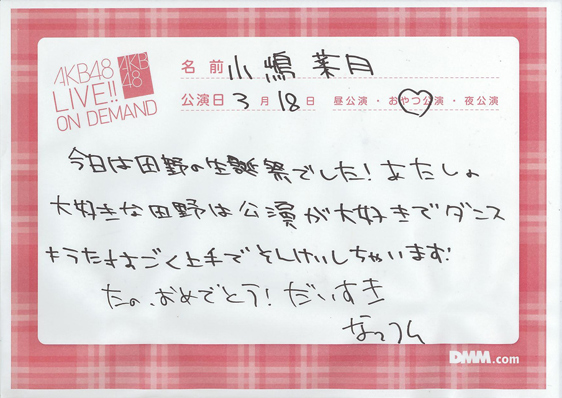 AKB48
LIVE!!
ON DEMAND
AKB
48
名前 小嶋菜月
公演日 3月18日 昼公演・おやつ公演・夜公演
今日は田野の生誕祭でした!あたしの
大好きな田野は公演が大好きでダンス
もうたもすごく上手でそんけいしちゃいます
たの、おめでとう!だいすき
なっつん
DMM.com